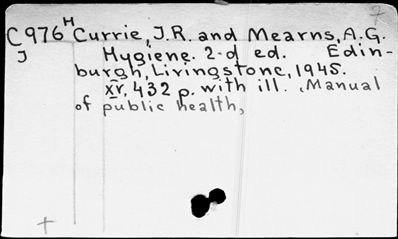 H
C976 Currie, J.R. and Mearns, A.G.
J Hygiene. 2-d ed. Edin-
burgh, Livingstone, 1945.
xv, 432 p. with ill. (Manual
of public health)